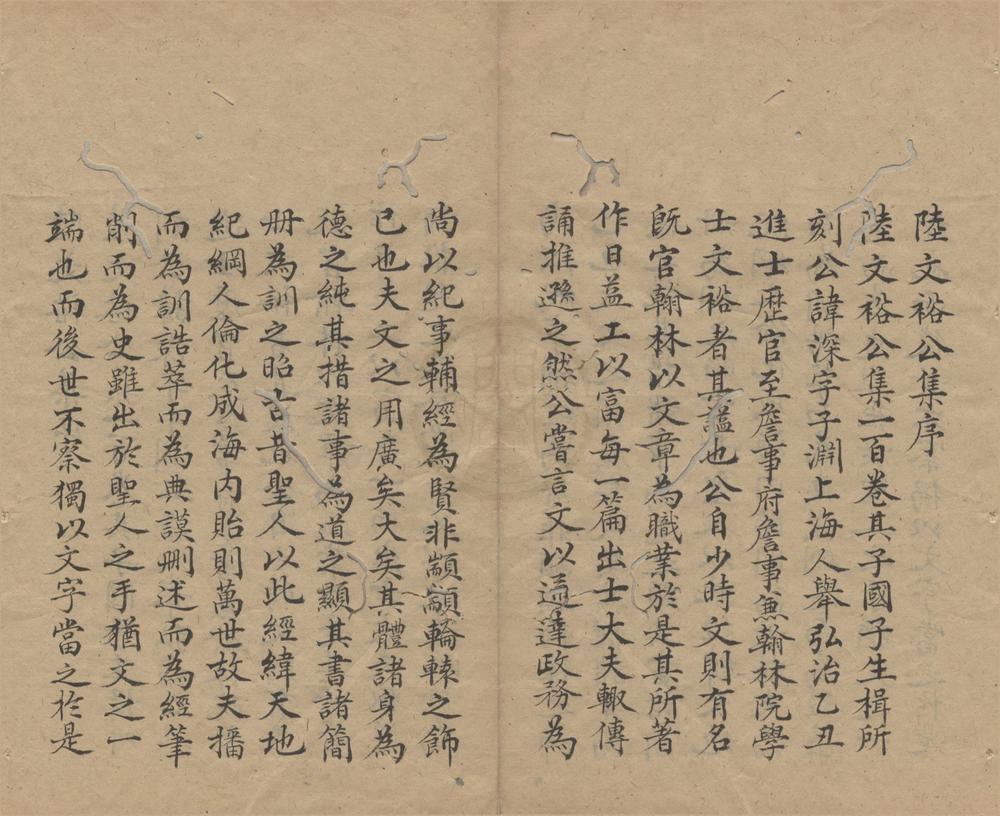 陸文裕公集序
陸文裕公集一百卷其子國子生楫所
刻公諱深字子淵上海人舉弘治乙丑
進士歷官至詹事府詹事兼翰林院學
士文裕者其謚也公自少時文則有名
既官翰林以文章為職業於是其所著
作日益工以富每一篇出士大夫輙傳
誦推遜之然公嘗言文以通達政務為
尚以紀事輔經為賢非顓顓輪轅之飾
已也夫文之用廣矣大矣其體諸身為
德之純其措諸事為道之顯其書諸簡
册為訓之昭古昔聖人以此經緯天地
紀綱人倫化成海内貽則萬世故夫播
而為訓誥萃而為典謨刪述而為經筆
削而為史雖出於聖人之手猶文之一
端也而後世不察獨以文字當之於是